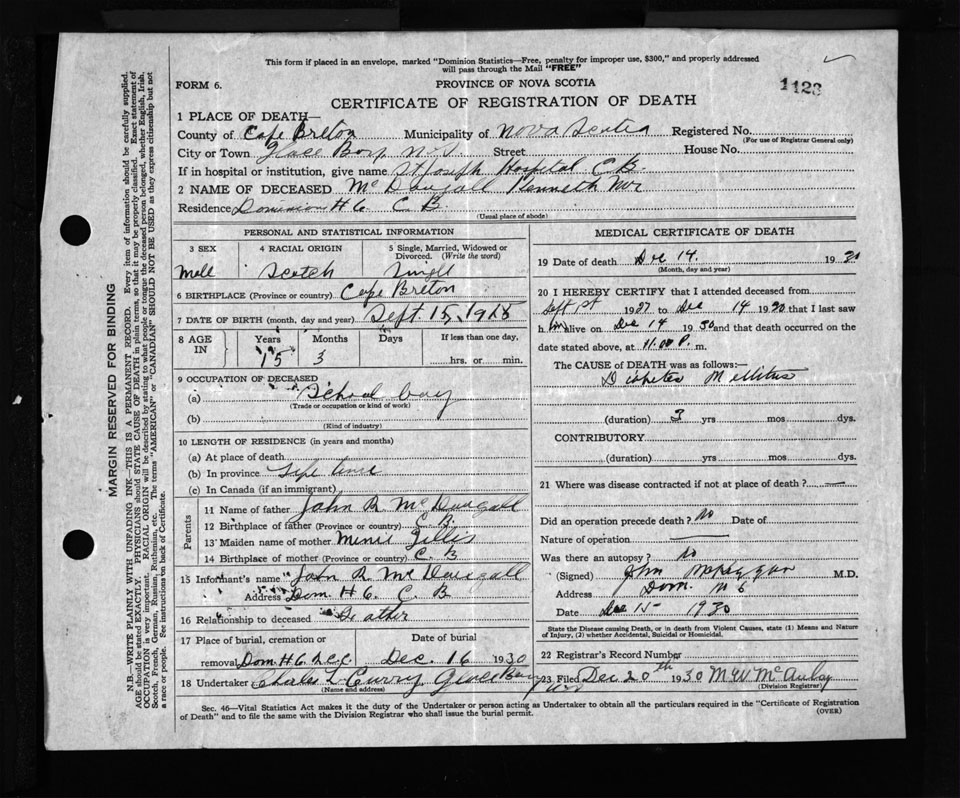 This form if placed in an envelope, marked "Dominion Statistics—Free, penalty for improper use, $300," and properly addressed
will pass through the Mail "FREE"
FORM 6.
PROVINCE OF NOVA SCOTIA
1123
CERTIFICATE OF REGISTRATION OF DEATH
1 PLACE OF DEATH—
County of Cape Breton Municipality of Nova Scotia Registered No.
(For use of Registrar General only)
City or Town Glace Bay N.S Street House No.
If in hospital or institution, give name St Joseph Hospital C B
2 NAME OF DECEASED Mc Dougall Kenneth
Residence Dominion #6 C B
(Usual place of abode)
PERSONAL AND STATISTICAL INFORMATION
3 SEX 4 RACIAL ORIGIN 5 Single, Married, Widowed or Divorced. (Write the word)
Mall Scotch Singl
6 BIRTHPLACE (Province or country) Cape Breton
7 DATE OF BIRTH (month, day and year) Sept 15, 1915
8 AGE IN Years Months Days If less than one day,
15 3 hrs. or min.
9 OCCUPATION OF DECEASED
(a) School boy
(Trade or occupation or kind of work)
(b)
(Kind of industry)
10 LENGTH OF RESIDENCE (in years and months)
(a) At place of death
(b) In province Life time
(c) In Canada (if an immigrant)
Parents
11 Name of father John R McDougall
12 Birthplace of father (Province or country) C B
13 Maiden name of mother Minie Gillis
14 Birthplace of mother (Province or country) C B
15 Informant's name John R Mc Dougall
Address Dom. #6. C B
16 Relationship to deceased Father
17 Place of burial, cremation or removal Date of burial
Dom. #6 Dec. 16 1930
18 Undertaker Charles L Curry Glace Bay
(Name and address)
MEDICAL CERTIFICATE OF DEATH
19 Date of death Dec 14. 1930
(Month, day and year)
20 I HEREBY CERTIFY that I attended deceased from
Sept 1st 1927 to Dec 14 1930 that I last saw
him alive on Dec 14 1930 and that death occurred on the
date stated above, at 11.00 P. m.
The CAUSE OF DEATH was as follows:—
Diabetes Mellitus
(duration) 3 yrs mos dys.
CONTRIBUTORY
(duration) yrs mos dys.
21 Where was disease contracted if not at place of death? —
Did an operation precede death? No Date of
Nature of operation —
Was there an autopsy? No
(Signed) John M.D.
Address Dom. No 6
Date Dec 15 1930
State the Disease causing Death, or in death from Violent Causes, state (1) Means and Nature
of Injury, (2) whether Accidental, Suicidal or Homicidal.
22 Registrar's Record Number
23 Filed Dec 20th 1930 M W McAulay
(Division Registrar)
Sec. 46—Vital Statistics Act makes it the duty of the Undertaker or person acting as Undertaker to obtain all the particulars required in the "Certificate of Registration
of Death" and to file the same with the Division Registrar who shall issue the burial permit.
(OVER)
MARGIN RESERVED FOR BINDING
N.B.—WRITE PLAINLY WITH UNFADING INK—THIS IS A PERMANENT RECORD. Every item of information should be carefully supplied.
AGE should be stated EXACTLY. PHYSICIANS should STATE CAUSE OF DEATH in plain terms, so that it may be properly classified. Exact statement of
OCCUPATION is very important. RACIAL ORIGIN will be described by stating to what people or tongue the deceased person belonged, whether English, Irish,
Scotch, French, German, Russian, Ruthenian, etc. The terms "AMERICAN" or "CANADIAN" SHOULD NOT BE USED as they express citizenship but not
a race or people. See instructions on back of Certificate.